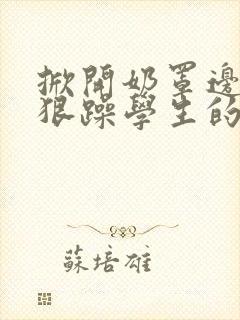 掀開奶罩邊
狠躁學生的
蘇培雄